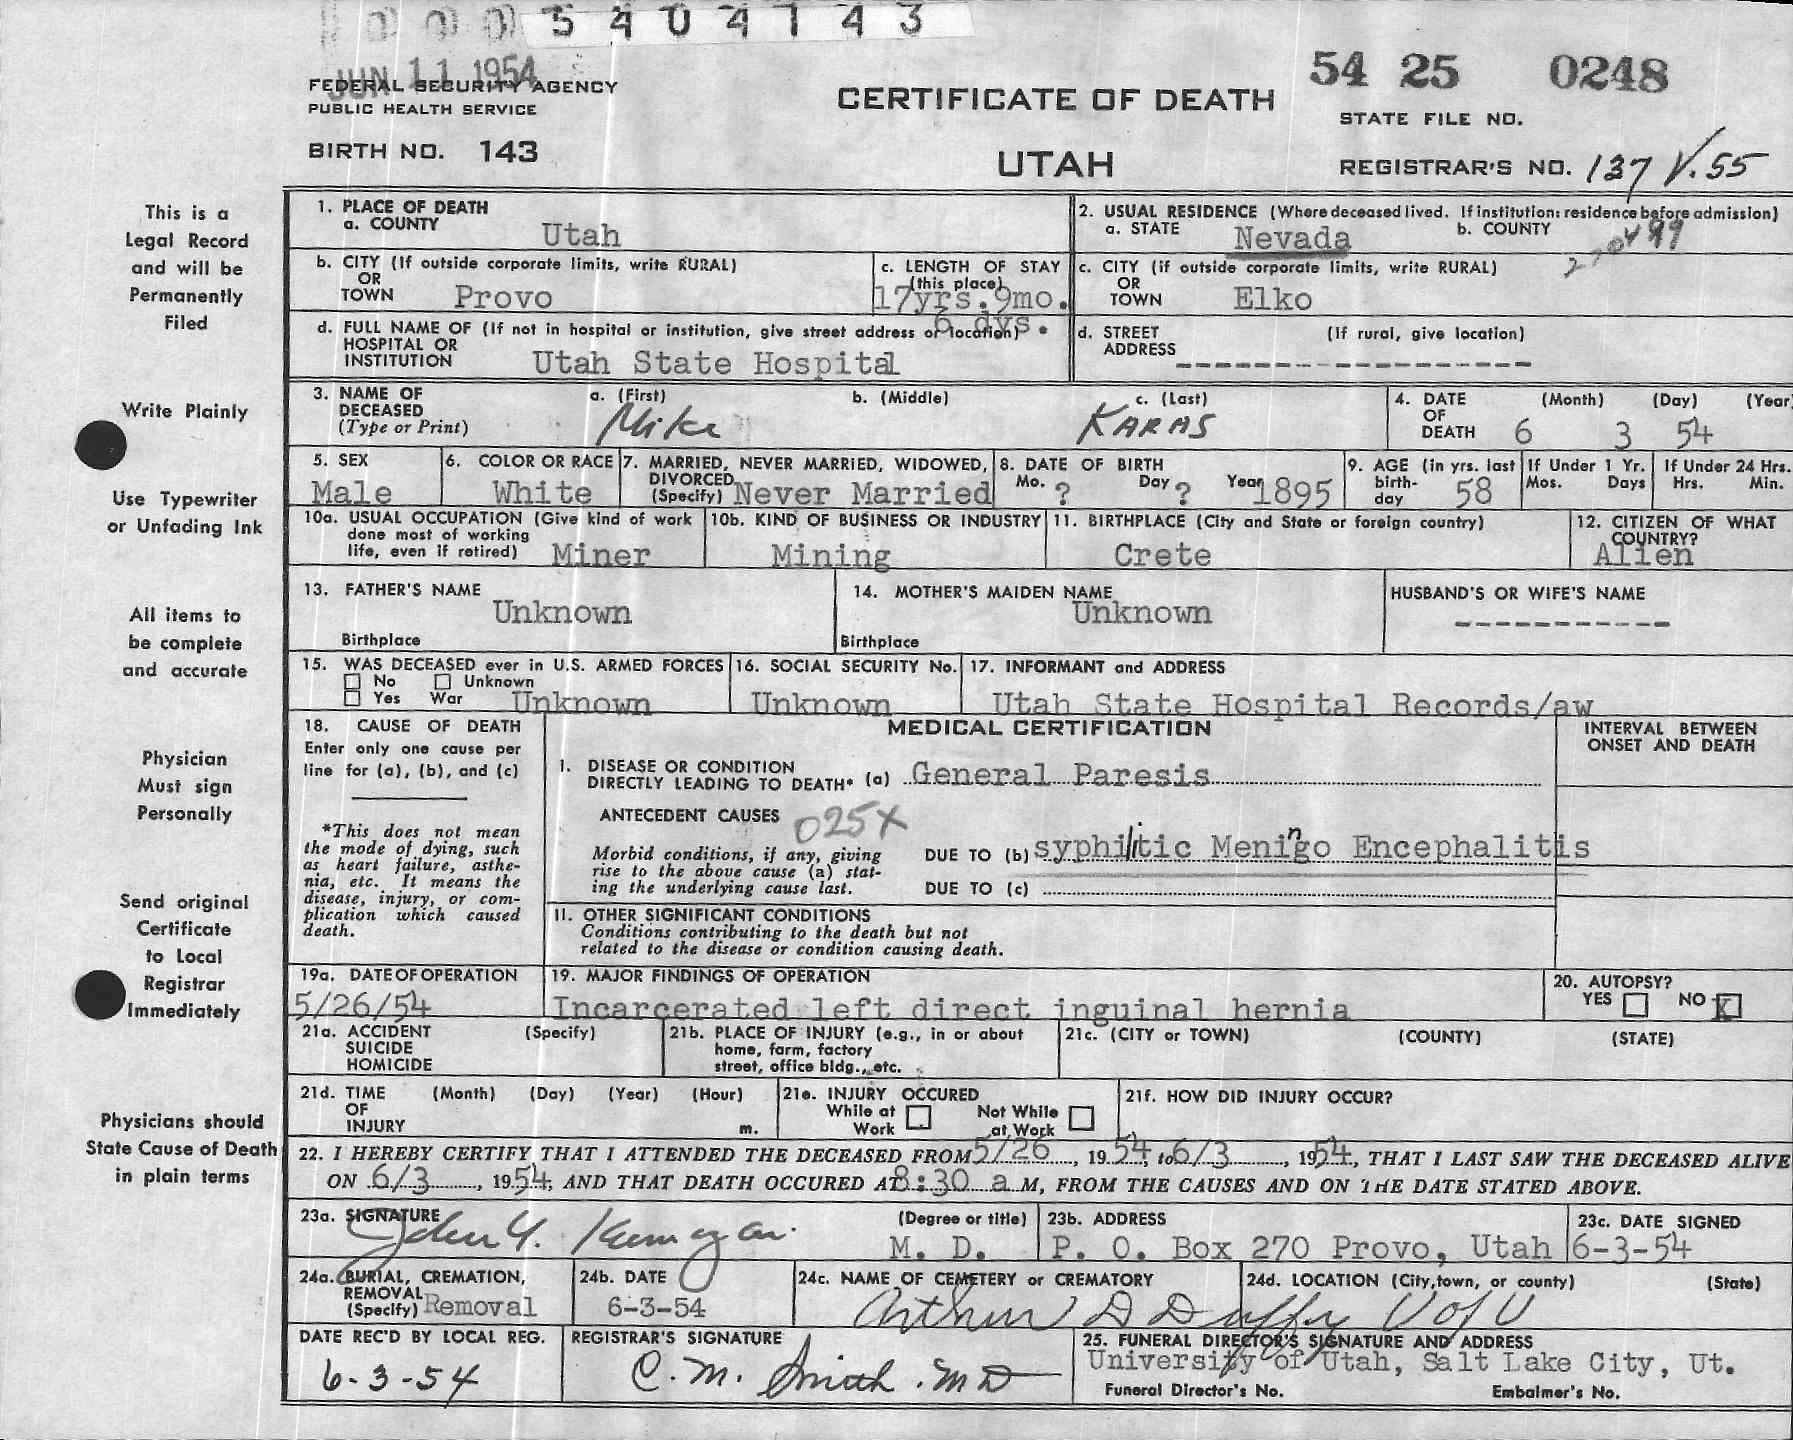 000 5404143
JUN 11 1954
FEDERAL SECURITY AGENCY
PUBLIC HEALTH SERVICE
BIRTH NO. 143
CERTIFICATE OF DEATH
UTAH
54 25 0248
STATE FILE NO.
REGISTRAR'S NO. 137 V. 55
This is a
Legal Record
and will be
Permanently
Filed
Write Plainly
Use Typewriter
or Unfading Ink
All items to
be complete
and accurate
Physician
Must sign
Personally
Send original
Certificate
to Local
Registrar
Immediately
Physicians should
State Cause of Death
in plain terms
1. PLACE OF DEATH
a. COUNTY Utah
2. USUAL RESIDENCE (Where deceased lived. If institution: residence before admission)
a. STATE Nevada b. COUNTY
b. CITY (If outside corporate limits, write RURAL)
OR
TOWN Provo
c. LENGTH OF STAY
(this place)
17yrs. 9mo.
6 dys.
c. CITY (if outside corporate limits, write RURAL)
OR
TOWN Elko
d. FULL NAME OF (If not in hospital or institution, give street address or location)
HOSPITAL OR
INSTITUTION Utah State Hospital
d. STREET (If rural, give location)
ADDRESS ------------------
3. NAME OF
DECEASED
(Type or Print)
a. (First) b. (Middle) c. (Last)
Mike KARAS
4. DATE (Month) (Day) (Year)
OF
DEATH 6 3 54
5. SEX
Male
6. COLOR OR RACE
White
7. MARRIED, NEVER MARRIED, WIDOWED,
DIVORCED
(Specify) Never Married
8. DATE OF BIRTH
Mo. ? Day ? Year 1895
9. AGE (in yrs. last
birth-
day 58
If Under 1 Yr.
Mos. Days
If Under 24 Hrs.
Hrs. Min.
10a. USUAL OCCUPATION (Give kind of work
done most of working
life, even if retired) Miner
10b. KIND OF BUSINESS OR INDUSTRY
Mining
11. BIRTHPLACE (City and State or foreign country)
Crete
12. CITIZEN OF WHAT
COUNTRY?
Alien
13. FATHER'S NAME
Unknown
Birthplace
14. MOTHER'S MAIDEN NAME
Unknown
Birthplace
HUSBAND'S OR WIFE'S NAME
-----------
15. WAS DECEASED ever in U.S. ARMED FORCES
No Unknown
Yes War Unknown
16. SOCIAL SECURITY No.
Unknown
17. INFORMANT and ADDRESS
Utah State Hospital Records/aw
18. CAUSE OF DEATH
Enter only one cause per
line for (a), (b), and (c)
*This does not mean
the mode of dying, such
as heart failure, asthe-
nia, etc. It means the
disease, injury, or com-
plication which caused
death.
MEDICAL CERTIFICATION
INTERVAL BETWEEN
ONSET AND DEATH
I. DISEASE OR CONDITION
DIRECTLY LEADING TO DEATH* (a) General Paresis
ANTECEDENT CAUSES 025X
Morbid conditions, if any, giving
rise to the above cause (a) stat-
ing the underlying cause last.
DUE TO (b) syphilitic Meningo Encephalitis
DUE TO (c)
II. OTHER SIGNIFICANT CONDITIONS
Conditions contributing to the death but not
related to the disease or condition causing death.
19a. DATE OF OPERATION
5/26/54
19. MAJOR FINDINGS OF OPERATION
Incarcerated left direct inguinal hernia
20. AUTOPSY?
YES NO X
21a. ACCIDENT (Specify)
SUICIDE
HOMICIDE
21b. PLACE OF INJURY (e.g., in or about
home, farm, factory
street, office bldg., etc.
21c. (CITY or TOWN) (COUNTY) (STATE)
21d. TIME (Month) (Day) (Year) (Hour)
OF
INJURY m.
21e. INJURY OCCURED
While at Not While
Work at Work
21f. HOW DID INJURY OCCUR?
22. I HEREBY CERTIFY THAT I ATTENDED THE DECEASED FROM 5/26, 19 54, to 6/3, 19 54, THAT I LAST SAW THE DECEASED ALIVE
ON 6/3, 19 54, AND THAT DEATH OCCURED AT 8:30 a M, FROM THE CAUSES AND ON THE DATE STATED ABOVE.
23a. SIGNATURE (Degree or title)
John Y. M. D.
23b. ADDRESS
P. O. Box 270 Provo, Utah
23c. DATE SIGNED
6-3-54
24a. BURIAL, CREMATION,
REMOVAL
(Specify) Removal
24b. DATE
6-3-54
24c. NAME OF CEMETERY or CREMATORY
24d. LOCATION (City, town, or county) (State)
Arthur D Duffy U of U
DATE REC'D BY LOCAL REG.
6-3-54
REGISTRAR'S SIGNATURE
C. M. Smith. MD
25. FUNERAL DIRECTOR'S SIGNATURE AND ADDRESS
University of Utah, Salt Lake City, Ut.
Funeral Director's No. Embalmer's No.